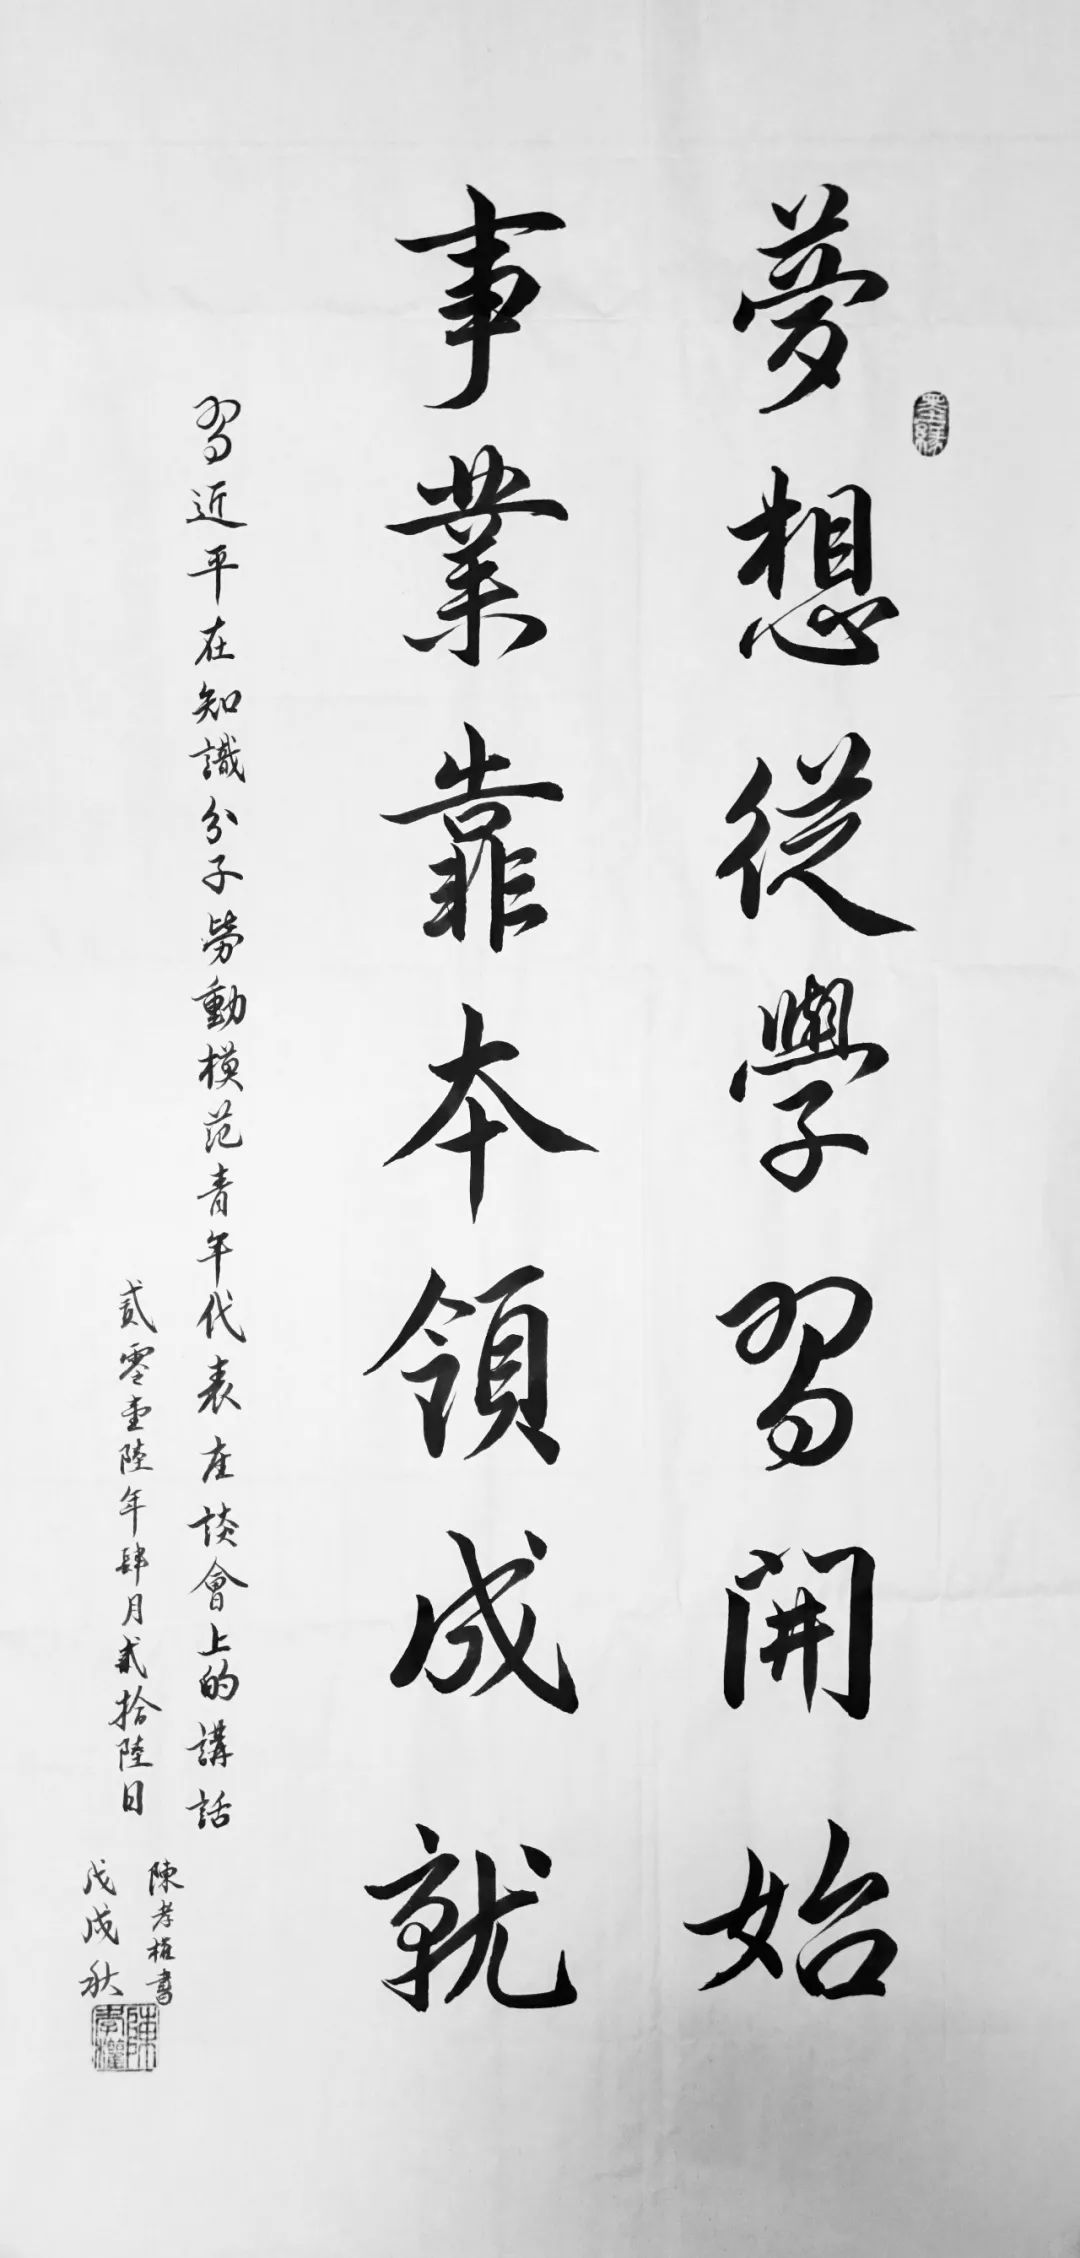 夢想從學習開始
事業靠本領成就
習近平在知識分子勞動模范青年代表座談會上的講話
貳零壹陸年肆月貳拾陸日
陳孝權書
戊戌秋
墨緣
陳孝權